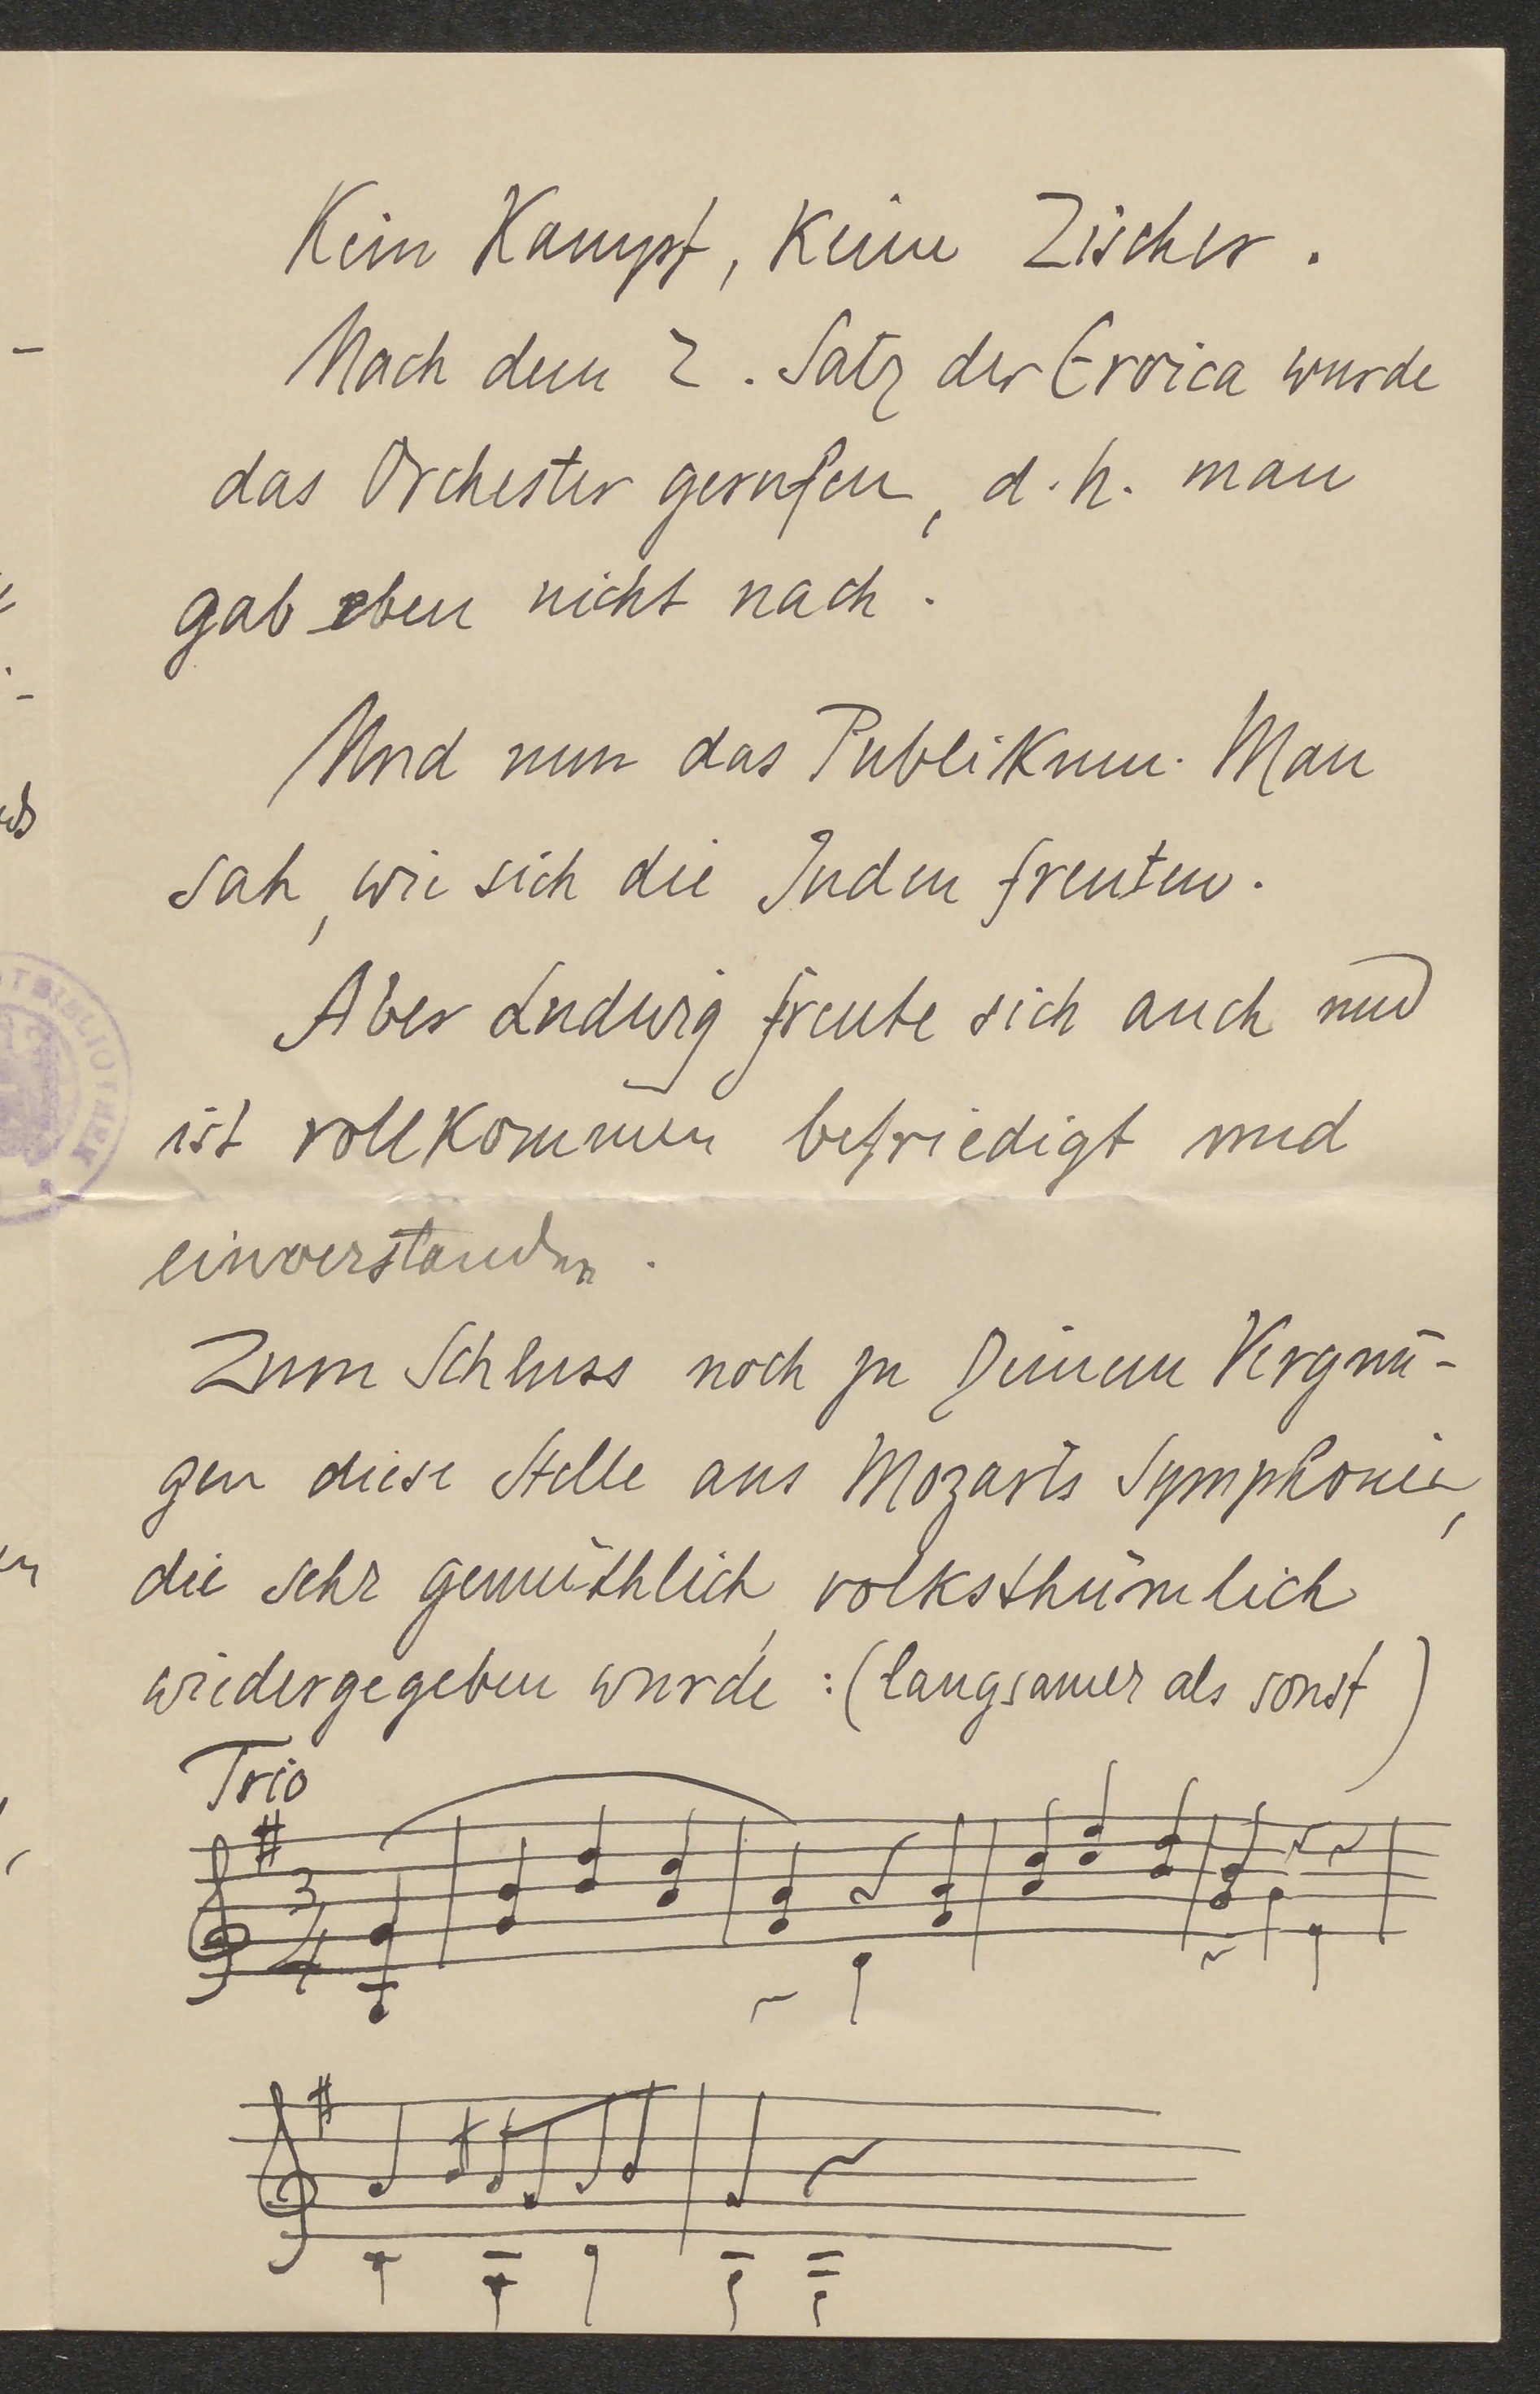 Kein Kampf, keine Zischer.
Nach dem 2. Satz der Eroica wurde
das Orchester gerufen, d. h. man
gab eben nicht nach.
Und nun das Publikum. Man
sah, wie sich die Juden freuten.
Aber Ludwig freute sich auch und
ist vollkommen befriedigt und
einverstanden.
Zum Schluss noch zu Deinem Vergnü-
gen diese Stelle aus Mozarts Symphonie,
die sehr gemüthlich, volksthümlich
wiedergegeben wurde: (langsamer als sonst)
Trio
3
4